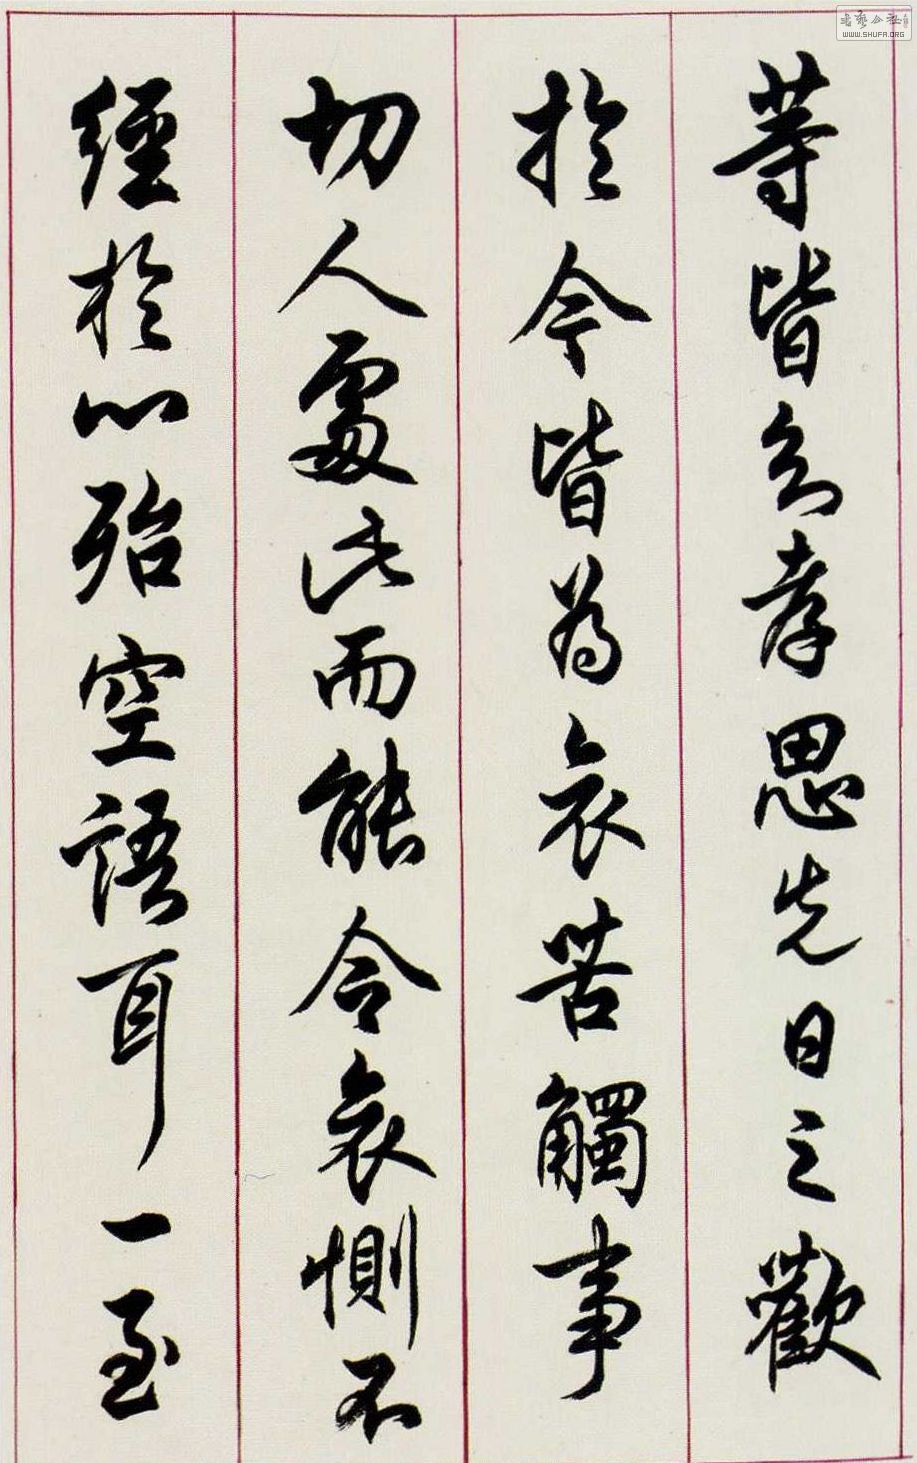 等皆知孝思先日之歡
於今皆為哀苦觸事
切人處此而能令哀惻不
經於心殆空語耳一至
WWW.SHUFA.ORG